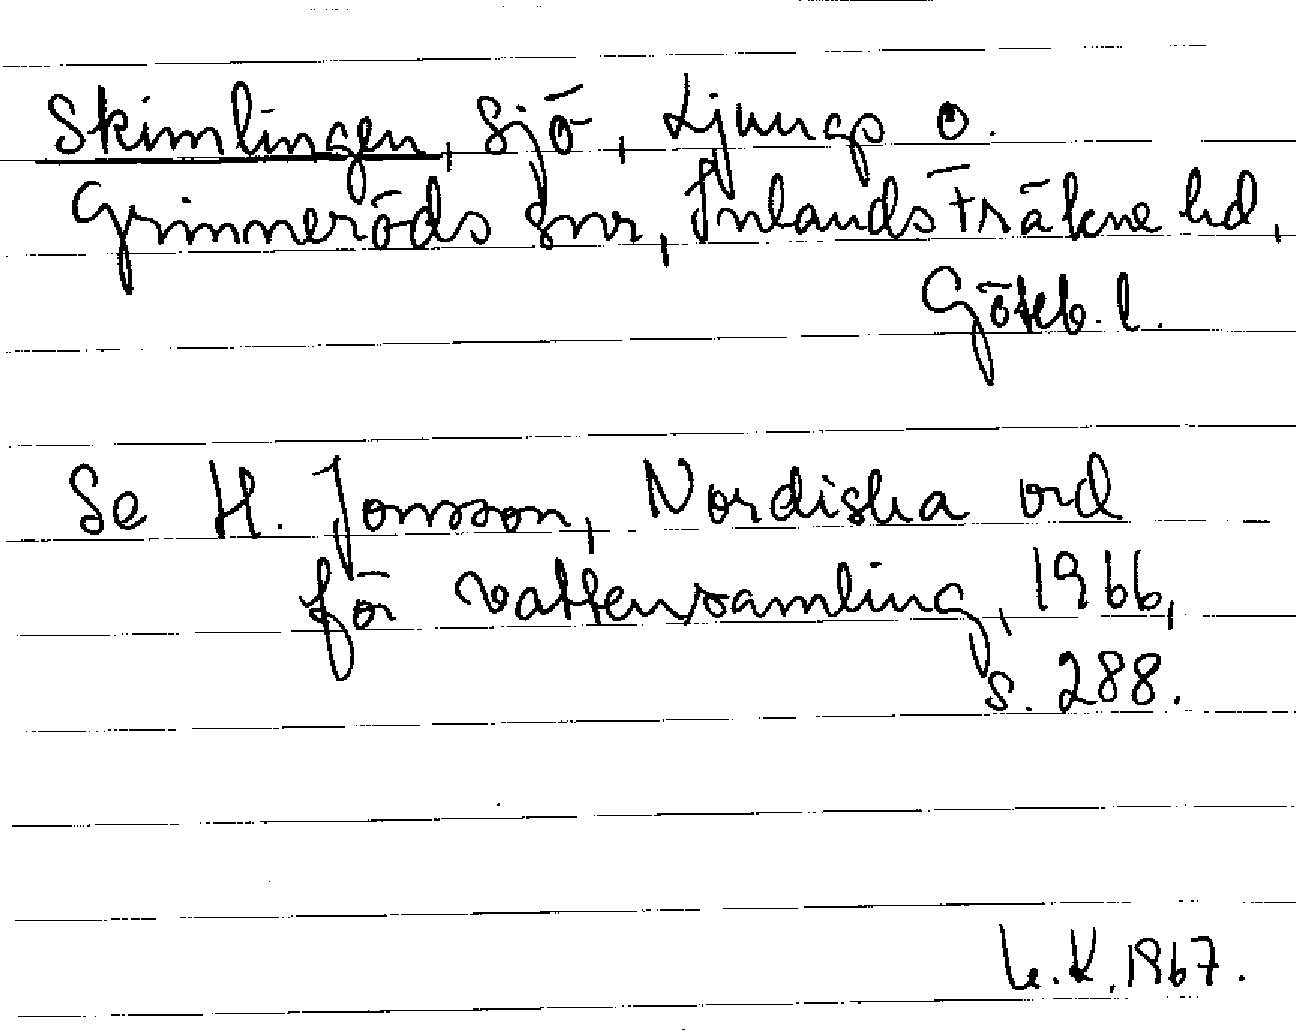 Skimlingen, sjö, Ljungs o.
Grinneröds snr, Inlands Fräkne hd,
Göteb. l.
Se H. Jonsson, Nordiska ord
för vattensamling, 1966,
s. 288.
K. 1967.